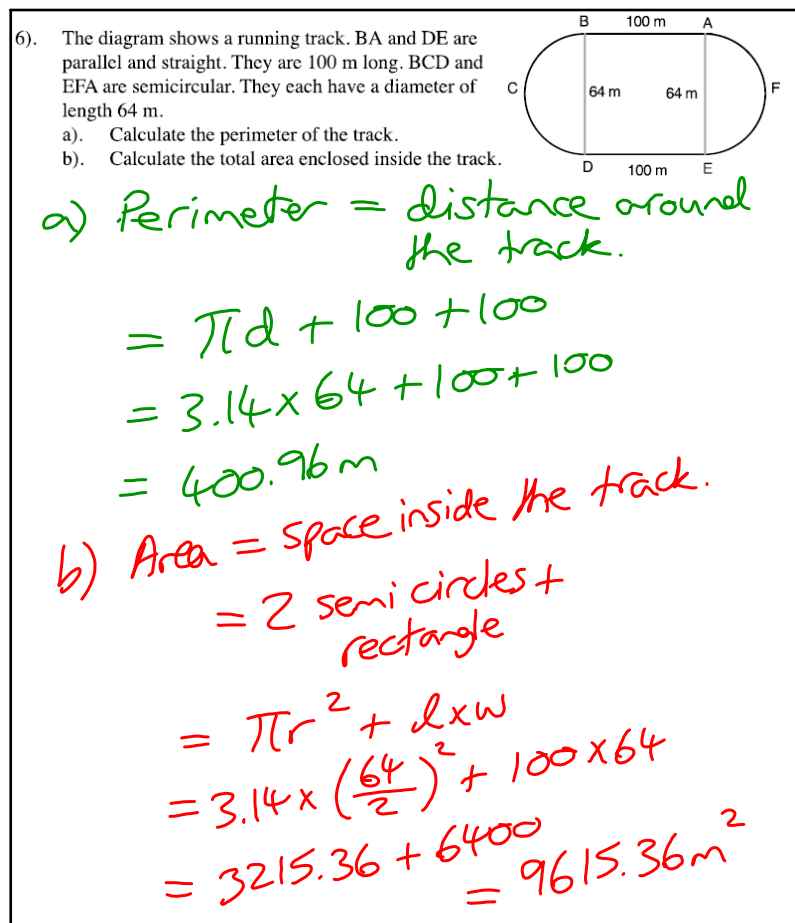 6). The diagram shows a running track. BA and DE are
parallel and straight. They are 100 m long. BCD and
EFA are semicircular. They each have a diameter of
length 64 m.
a). Calculate the perimeter of the track.
b). Calculate the total area enclosed inside the track.
B 100 m A
C 64 m 64 m F
D 100 m E
a) Perimeter = distance around
the track.
= πd + 100 + 100
= 3.14 × 64 + 100 + 100
= 400.96 m
b) Area = space inside the track.
= 2 semi circles +
rectangle
= πr² + l×w
= 3.14 × (64/2)² + 100 × 64
= 3215.36 + 6400
= 9615.36 m²